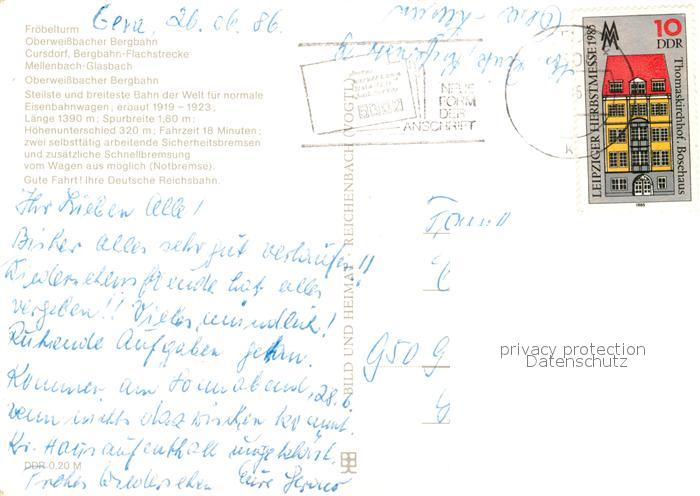 Gera, 26.06.86.
Fröbelturm
Oberweißbacher Bergbahn
Cursdorf, Bergbahn-Flachstrecke
Mellenbach-Glasbach
Oberweißbacher Bergbahn
Steilste und breiteste Bahn der Welt für normale
Eisenbahnwagen; erbaut 1919 – 1923;
Länge 1390 m; Spurbreite 1,80 m;
Höhenunterschied 320 m; Fahrzeit 18 Minuten;
zwei selbsttätig arbeitende Sicherheitsbremsen
und zusätzliche Schnellbremsung
vom Wagen aus möglich (Notbremse).
Gute Fahrt! Ihre Deutsche Reichsbahn.
Ihr Lieben Alle!
Bisher alles sehr gut verlaufen!!
Wiedersehensfreude hat alles
vergeben!! Vieles mündlich!
Ruhende Aufgaben getan.
Kommen am Sonnabend, 28.6.
wenn nichts dazwischen kommt.
Kr. Hausaufenthalt ungeklärt.
Frohes Wiedersehen Eure
DDR 0,20 M
BILD UND HEIMAT REICHENBACH (VOGTL)
NEUE
FORM
DER
ANSCHRIFT
10
DDR
LEIPZIGER HERBSTMESSE 1985
Thomaskirchhof, Bosehaus
1985
privacy protection
Datenschutz